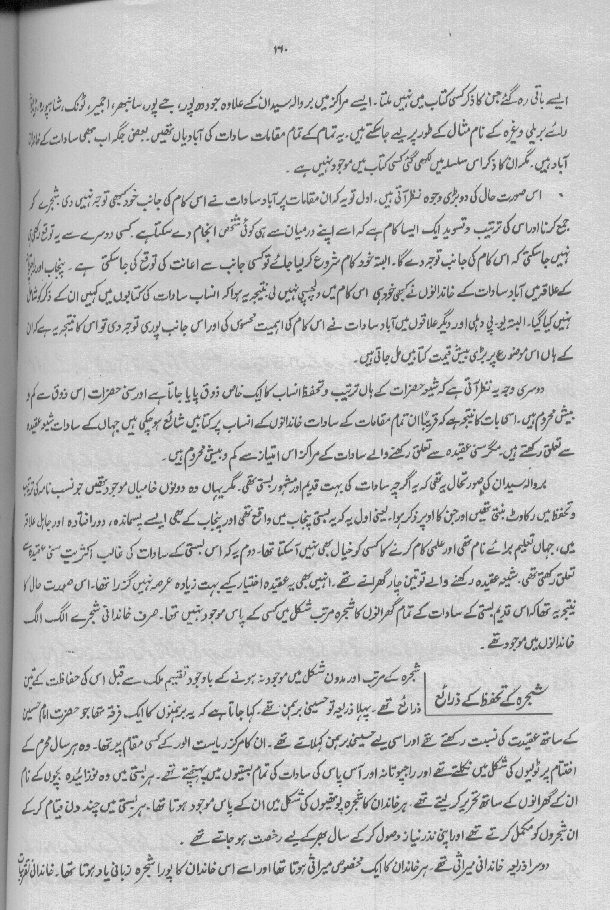 ۱۶۰
ایسے باقی رہ گئے جن کا ذکر کسی کتاب میں نہیں ملتا۔ ایسے مراکز میں بروالہ سیدان کے علاوہ جودھ پور، جے پور، سانبھر، اجمیر، ٹونک، شاہپورہ
رائے بریلی وغیرہ کے نام مثال کے طور پر لیے جا سکتے ہیں۔ یہ تمام کے تمام مقامات سادات کی آبادیاں تھیں۔ بعض جگہ اب بھی سادات کے خاندان
آباد ہیں۔ مگر ان کا ذکر اس سلسلہ میں لکھی گئی کسی کتاب میں موجود نہیں ہے ۔
اس صورت حال کی دو بڑی وجوہ نظر آتی ہیں۔ اول تو یہ کہ ان مقامات پر آباد سادات نے اس کام کی جانب خود کبھی توجہ نہیں دی۔ شجرے کو
جمع کرنا اور اس کی ترتیب و تسوید ایک ایسا کام ہے کہ اسے اپنے درمیان سے ہی کوئی شخص انجام دے سکتا ہے۔ کسی دوسرے سے یہ توقع رکھی
نہیں جا سکتی کہ اس کام کی جانب توجہ دے گا۔ البتہ خود کام شروع کر لیا جائے تو کسی جانب سے اعانت کی توقع کی جا سکتی ہے ۔ پنجاب اور
کے علاقہ میں آباد سادات کے خاندانوں نے کبھی خود ہی اس کام میں دلچسپی نہیں لی نتیجہ یہ ہوا کہ انساب سادات کی کتابوں میں کہیں ان کے ذکر کو شامل
نہیں کیا گیا۔ البتہ یو پی، دہلی اور دیگر علاقوں میں آباد سادات نے اس کام کی اہمیت محسوس کی اور اس جانب پوری توجہ دی تو اس کا نتیجہ یہ ہے کہ ان
کے ہاں اس موضوع پر بڑی بیش قیمت کتابیں مل جاتی ہیں۔
دوسری وجہ یہ نظر آتی ہے کہ شیعہ حضرات کے ہاں ترتیب و تحفظ انساب کا ایک خاص ذوق پایا جاتا ہے اور سنی حضرات اس ذوق سے کم و
بیش محروم ہیں۔ اسی بات کا نتیجہ ہے کہ قریباً ان تمام مقامات کے سادات خاندانوں کے انساب پر کتابیں شائع ہو چکی ہیں جہاں کے سادات شیعہ عقیدہ
سے تعلق رکھتے ہیں۔ مگر سنی عقیدہ سے تعلق رکھنے والے سادات کے مراکز اس امتیاز سے کم و بیش محروم ہیں۔
بروالہ سیدان کی صورتحال یہ تھی کہ یہ اگرچہ سادات کی بہت قدیم اور مشہور بستی تھی۔ مگر یہاں وہ دونوں خامیاں موجود تھیں جو نسب نامہ کی ترتیب
و تحفظ میں رکاوٹ بنتی تھیں اور جن کا اوپر ذکر ہوا۔ یعنی اول یہ کہ یہ بستی پنجاب میں واقع تھی اور پنجاب کے بھی ایسے پسماندہ، دور افتادہ اور جاہل علاقہ
میں، جہاں تعلیم برائے نام تھی اور علمی کام کرنے کا کسی کو خیال بھی نہیں آ سکتا تھا۔ دوم یہ کہ اس بستی کے سادات کی غالب اکثریت سنی عقیدہ سے
تعلق رکھتی تھی۔ شیعہ عقیدہ رکھنے والے تو تین چار گھرانے تھے، انہیں بھی یہ عقیدہ اختیار کیے بہت زیادہ عرصہ نہیں گذرا تھا۔ اس صورت حال کا
نتیجہ یہ تھا کہ اس قدیم بستی کے سادات کے تمام گھرانوں کا شجرہ مرتب شکل میں کسی کے پاس موجود نہیں تھا۔ صرف خاندانی شجرے الگ الگ
خاندانوں میں موجود تھے ۔
شجرہ کے تحفظ کے ذرائع شجرہ کے مرتب اور مدون شکل میں موجود نہ ہونے کے باوجود تقسیم ملک سے قبل اس کی حفاظت کے تین
ذرائع تھے۔ پہلا ذریعہ تو حسینی برہمن تھے۔ کہا جاتا ہے کہ یہ برہمنوں کا ایک فرقہ تھا جو حضرت امام حسین
کے ساتھ عقیدت کی نسبت رکھتے تھے اور اسی لیے حسینی برہمن کہلاتے تھے ۔ ان کا مرکز ریاست الور کے کسی مقام پر تھا۔ وہ ہر سال محرم کے
اختتام پر ٹولیوں کی شکل میں نکلتے تھے اور راجپوتانہ اور آس پاس کی سادات کی تمام بستیوں میں پہنچتے تھے۔ ہر بستی میں وہ نوزائیدہ بچوں کے نام
ان کے گھرانوں کے ساتھ تحریر کر لیتے تھے۔ ہر خاندان کا شجرہ پوتھیوں کی شکل میں ان کے پاس موجود ہوتا تھا۔ ہر بستی میں چند دن قیام کر کے
ان شجروں کو مکمل کرتے تھے اور اپنی نذر نیاز وصول کر کے سال بھر کے لیے رخصت ہو جاتے تھے ۔
دوسرا ذریعہ خاندانی میراثی تھے۔ ہر خاندان کا ایک مخصوص میراثی ہوتا تھا اور اسے اس خاندان کا پورا شجرہ زبانی یاد ہوتا تھا۔ خاندانی تقریبات